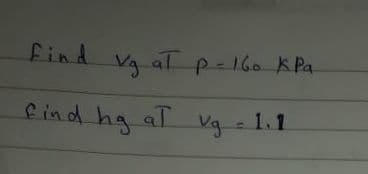 find vg at p=160 KPa
find hg at vg = 1.1